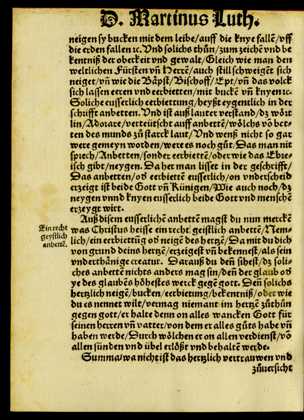 D. Martinus Luth.
neigen sy bucken mit dem leibe/ auff die knye fallen/ vff
die erden fallen ꝛc. Vnd solichs thůn/ zum zeichē vnd be
kentniß der oberkeit vnd gewalt/ Gleich wie man den
weltlichen Fürsten vñ Herrē/ auch still schweigēt sich
neiget/ vñ wie die Bäpst/ Bischoff/ Ept/ vñ das volck
sich lassen eeren vnd eerbietten/ mit bucke vñ knyen ꝛc.
Soliche eusserlich eerbiettung/ heyßt eygentlich in der
schrifft anbetten. Vnd ist auß lauter verstand/ dz wört
lin/ Adorare/ vertteütscht auff anbettē/ wölchs vō bet-
ten des munds zů starck laut/ Vnd wenß nicht so gar
were gemeyn worden/ were es noch gůt/ Das man nit
sprech/ Anbetten/ sonder eerbiettē/ oder wie das Ebre-
isch gibt/ neygen. Daher man lisset in der geschrifft/
Das anbetten/ oð eerbiettē eusserlich/ on vnderscheid
erzeigt ist beide Gott vñ Künigen/ Wie auch noch/ dz
neygen vnnd knyen eusserlich beide Gott vnd menschē
erzeygt wirt.
Auß disem eusserlichē anbettē magst du nun merckē
Ein recht
geystlich
anbettē.
was Christus heisse ein recht geistlich anbettē/ Nem-
lich/ ein eerbiettūg oð neigē des herzē/ Da mit du dich
von grund deins herzē/ erzeigst vñ bekennest/ als sein
vnderthänige creatur. Darauß du den sihest/ dz solich
anbettē nichts anders mag sin/ deñ der glaub oð
ye des glaubēs höhestes werck gegē gott. Deñ solichs
herzlich neigē/ bucken/ eerbiettung/ bekentniß/ oder wie
du es nennet wilt/ vermag niemant im herzē zůthůn
gegen gott/ er halte denn on alles wancken Gott für
seinen herren vñ vatter/ von dem er alles gůts habe vñ
haben werde/ Durch wölchen er on allen verdienst/ vō
allen sünden vnd übel erlößt vnd behaltē werde.
Summa/ wa nicht ist das herzlich vertrauwen vnd
zůuersicht